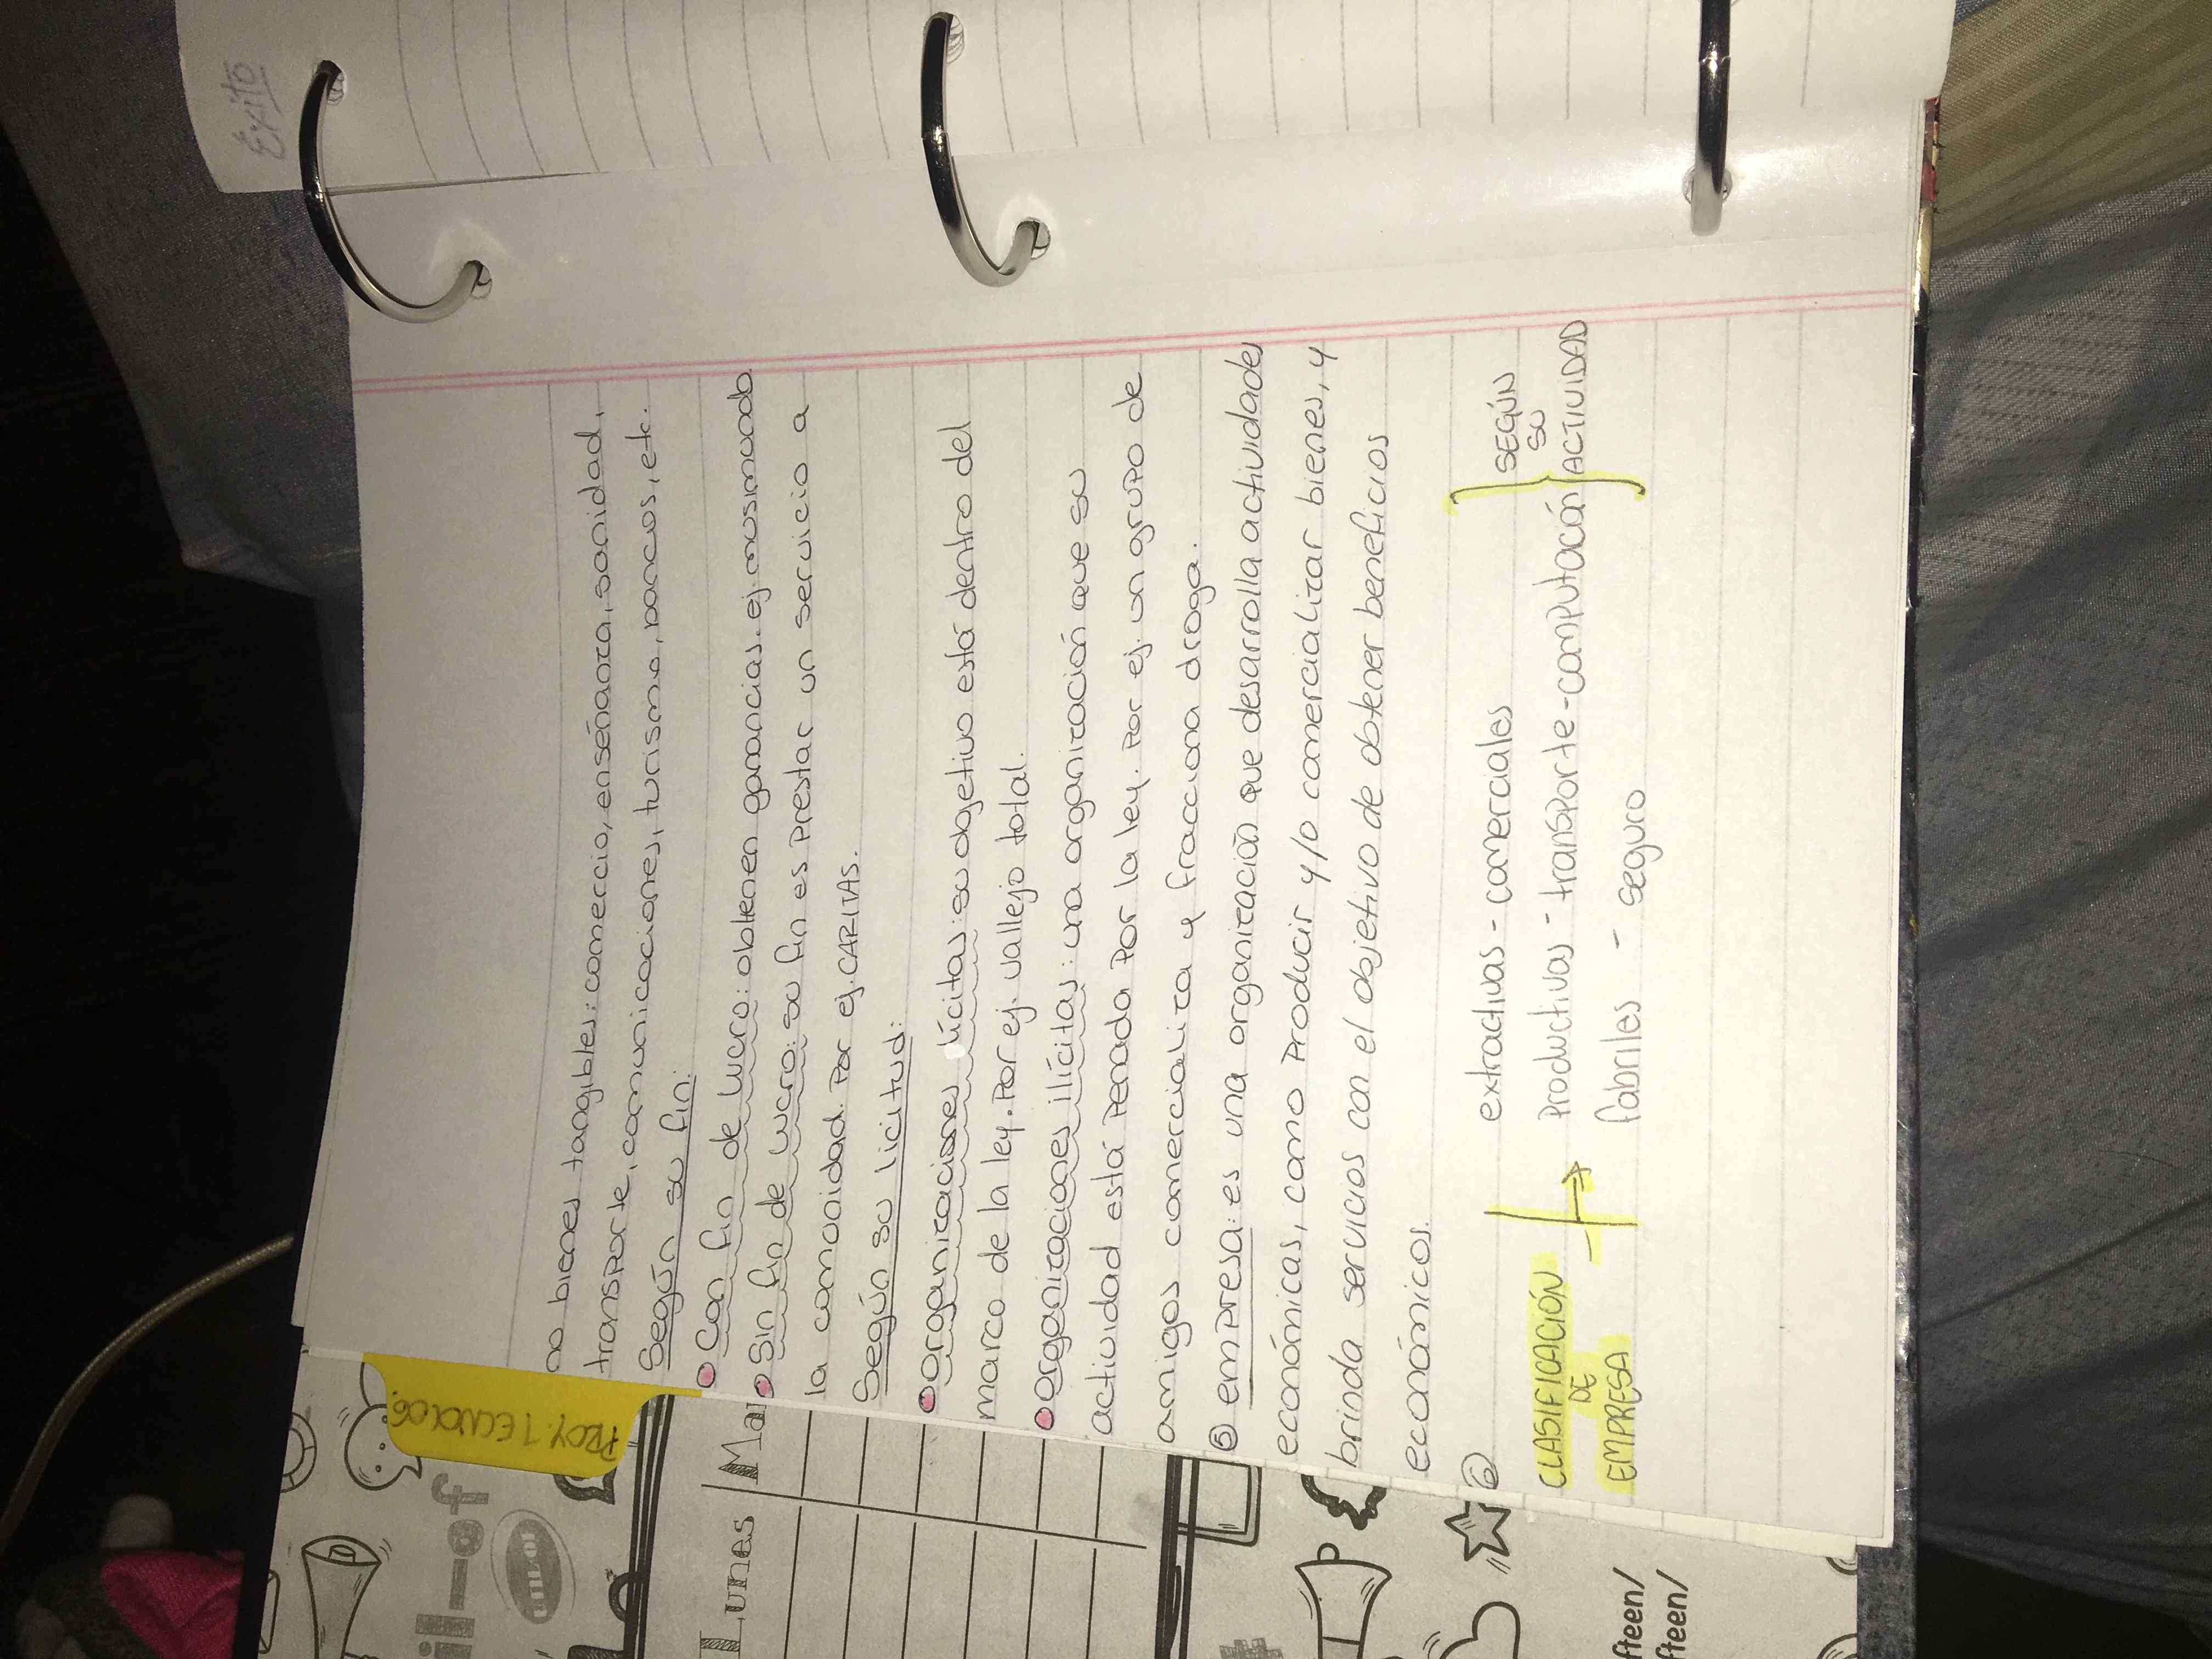 Éxito
no bienes tangibles: comercio, enseñanza, sanidad,
transporte, comunicaciones, turismo, bancos, etc.
Según su fin:
Con fin de lucro: obtienen ganancias. ej. musimundo.
Sin fin de lucro: su fin es prestar un servicio a
la comunidad. Por ej. CARITAS.
Según su licitud:
organizaciones lícitas: su objetivo está dentro del
marco de la ley. Por ej. vallejo total.
organizaciones ilícitas: una organización que su
actividad está penada por la ley. Por ej. un grupo de
amigos comercializa y fracciona droga.
⑤ empresa: es una organización que desarrolla actividades
económicas, como producir y/o comercializar bienes, y
brinda servicios con el objetivo de obtener beneficios
económicos.
⑥
CLASIFICACIÓN
DE
EMPRESA
extractivas - comerciales
Productivas - transporte - computación
fabriles - seguro
SEGÚN
SU
ACTIVIDAD
PROY. TECNOLOG.
Lunes Mar
il-of
fteen/
fteen/